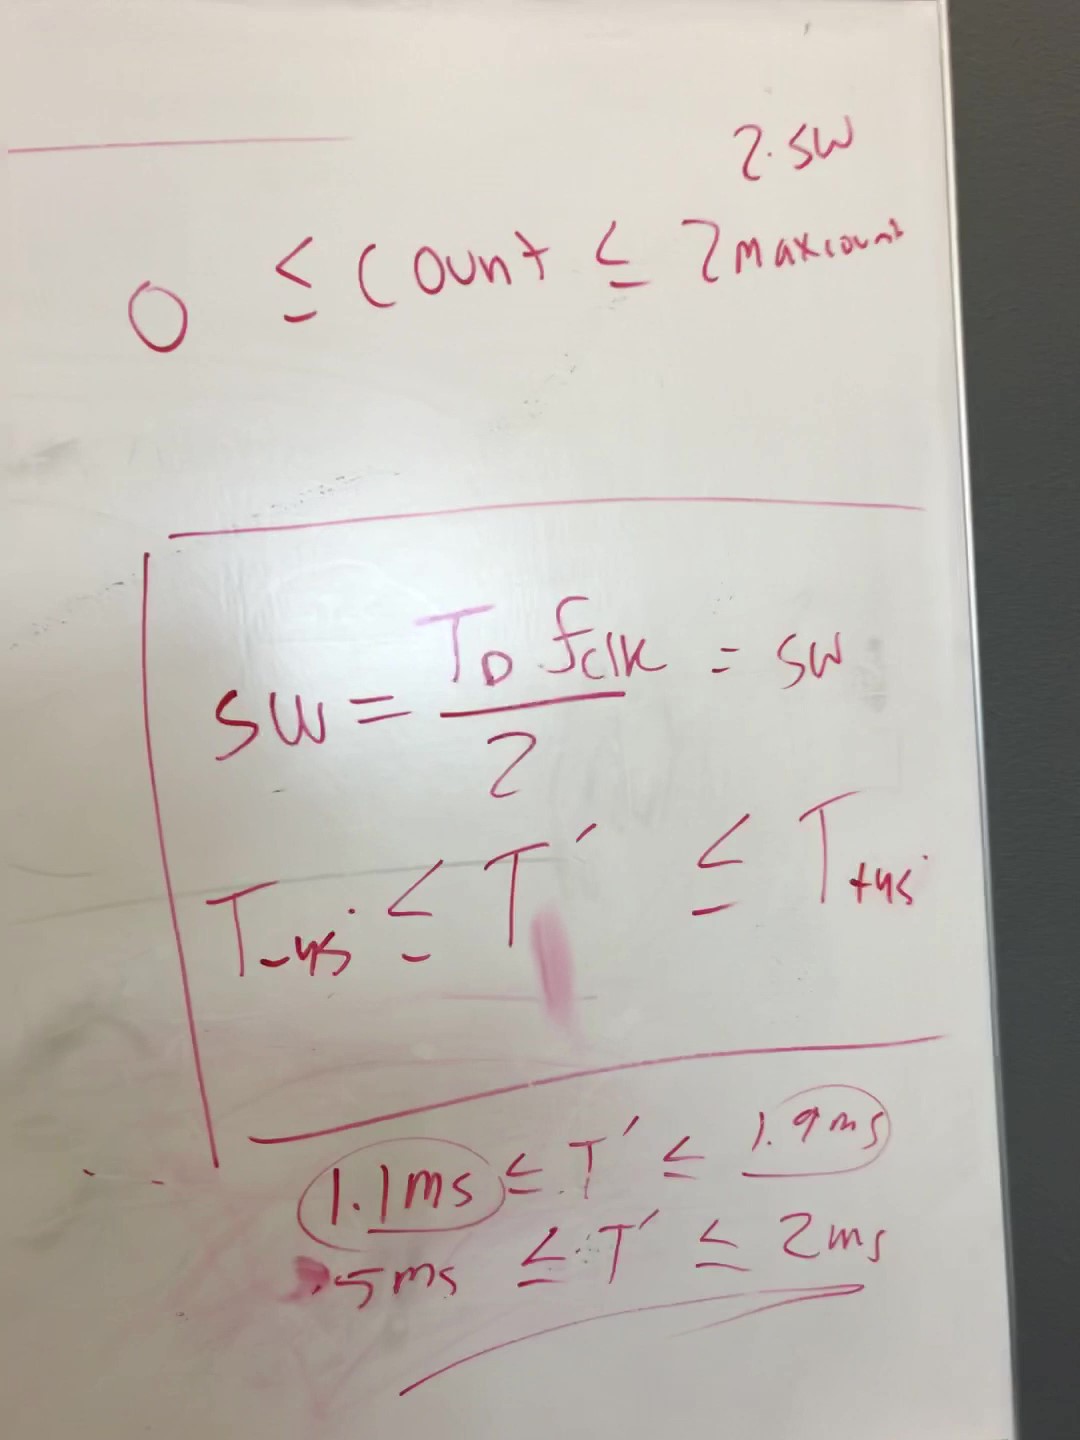 2.SW
0 ≤ Count ≤ 2maxcount
SW = T_D f_clk / 2 = SW
T_-45° ≤ T′ ≤ T_+45°
1.1ms ≤ T′ ≤ 1.9ms
.5ms ≤ T′ ≤ 2ms